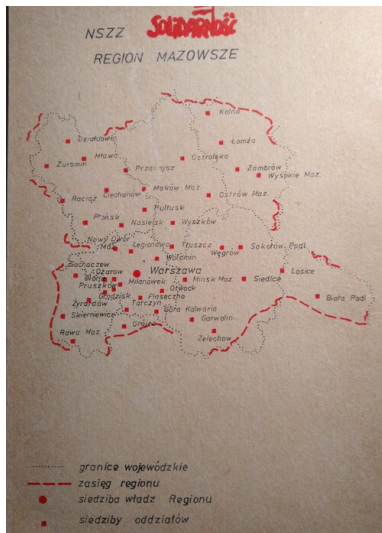 NSZZ SOLIDARNOŚĆ
REGION MAZOWSZE
Kolno
Działdowo
Łomża
Mława
Ostrołęka
Żuromin
Przasnysz
Zambrów
Wysokie Maz.
Ciechanów
Maków Maz.
Ostrów Maz.
Raciąż
Pułtusk
Płońsk
Nasielsk
Wyszków
Nowy Dwór
Maz.
Legionowo
Tłuszcz
Węgrów
Sokołów Podl.
Wołomin
Sochaczew
Ożarów
Warszawa
Łosice
Błonie
Milanówek
Mińsk Maz.
Siedlce
Pruszków
Otwock
Grodzisk
Piaseczno
Biała Podl.
Żyrardów
Tarczyn
Góra Kalwaria
Skierniewice
Grójec
Garwolin
Rawa Maz.
Żelechów
granice wojewódzkie
zasięg regionu
siedziba władz Regionu
siedziby oddziałów